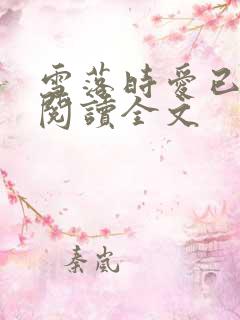 雪落時愛已
閱讀全文
秦嵐